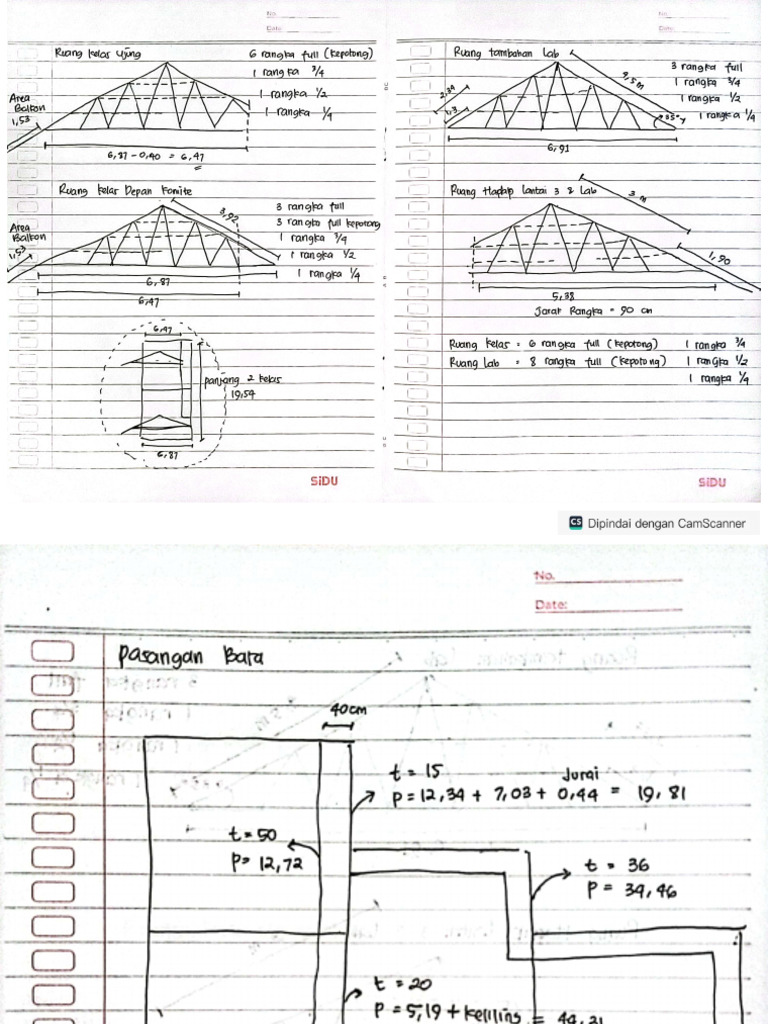 No.
Date:
Ruang kelas Ujung
6 rangka full (kepotong)
1 rangka 3/4
1 rangka 1/2
1 rangka 1/4
Area
Balkon
1,53
6,87 - 0,40 = 6,47
Ruang kelas Depan Komite
3 rangka full
3 rangka full kepotong
1 rangka 3/4
1 rangka 1/2
1 rangka 1/4
3,92
Area
Balkon
1,53
6,87
6,47
6,47
panjang 2 kelas
19,54
6,87
SiDU
No.
Date:
Ruang tambahan Lab
3 rangka full
1 rangka 3/4
1 rangka 1/2
1 rangka 1/4
4,5 m
2,39
1,3
35°
6,91
Ruang Hadap lantai 3 & Lab
3 m
1,90
5,38
Jarak Rangka = 90 cm
Ruang kelas = 6 rangka full (kepotong) 1 rangka 3/4
Ruang Lab = 8 rangka full (kepotong) 1 rangka 1/2
1 rangka 1/4
SiDU
CS Dipindai dengan CamScanner
No.
Date:
Pasangan Bata
40cm
t = 15 Jurai
p = 12,34 + 7,03 + 0,44 = 19,81
t = 50
p = 12,72
t = 36
p = 34,46
t = 20
p = 5,19 + keliling = 44,21